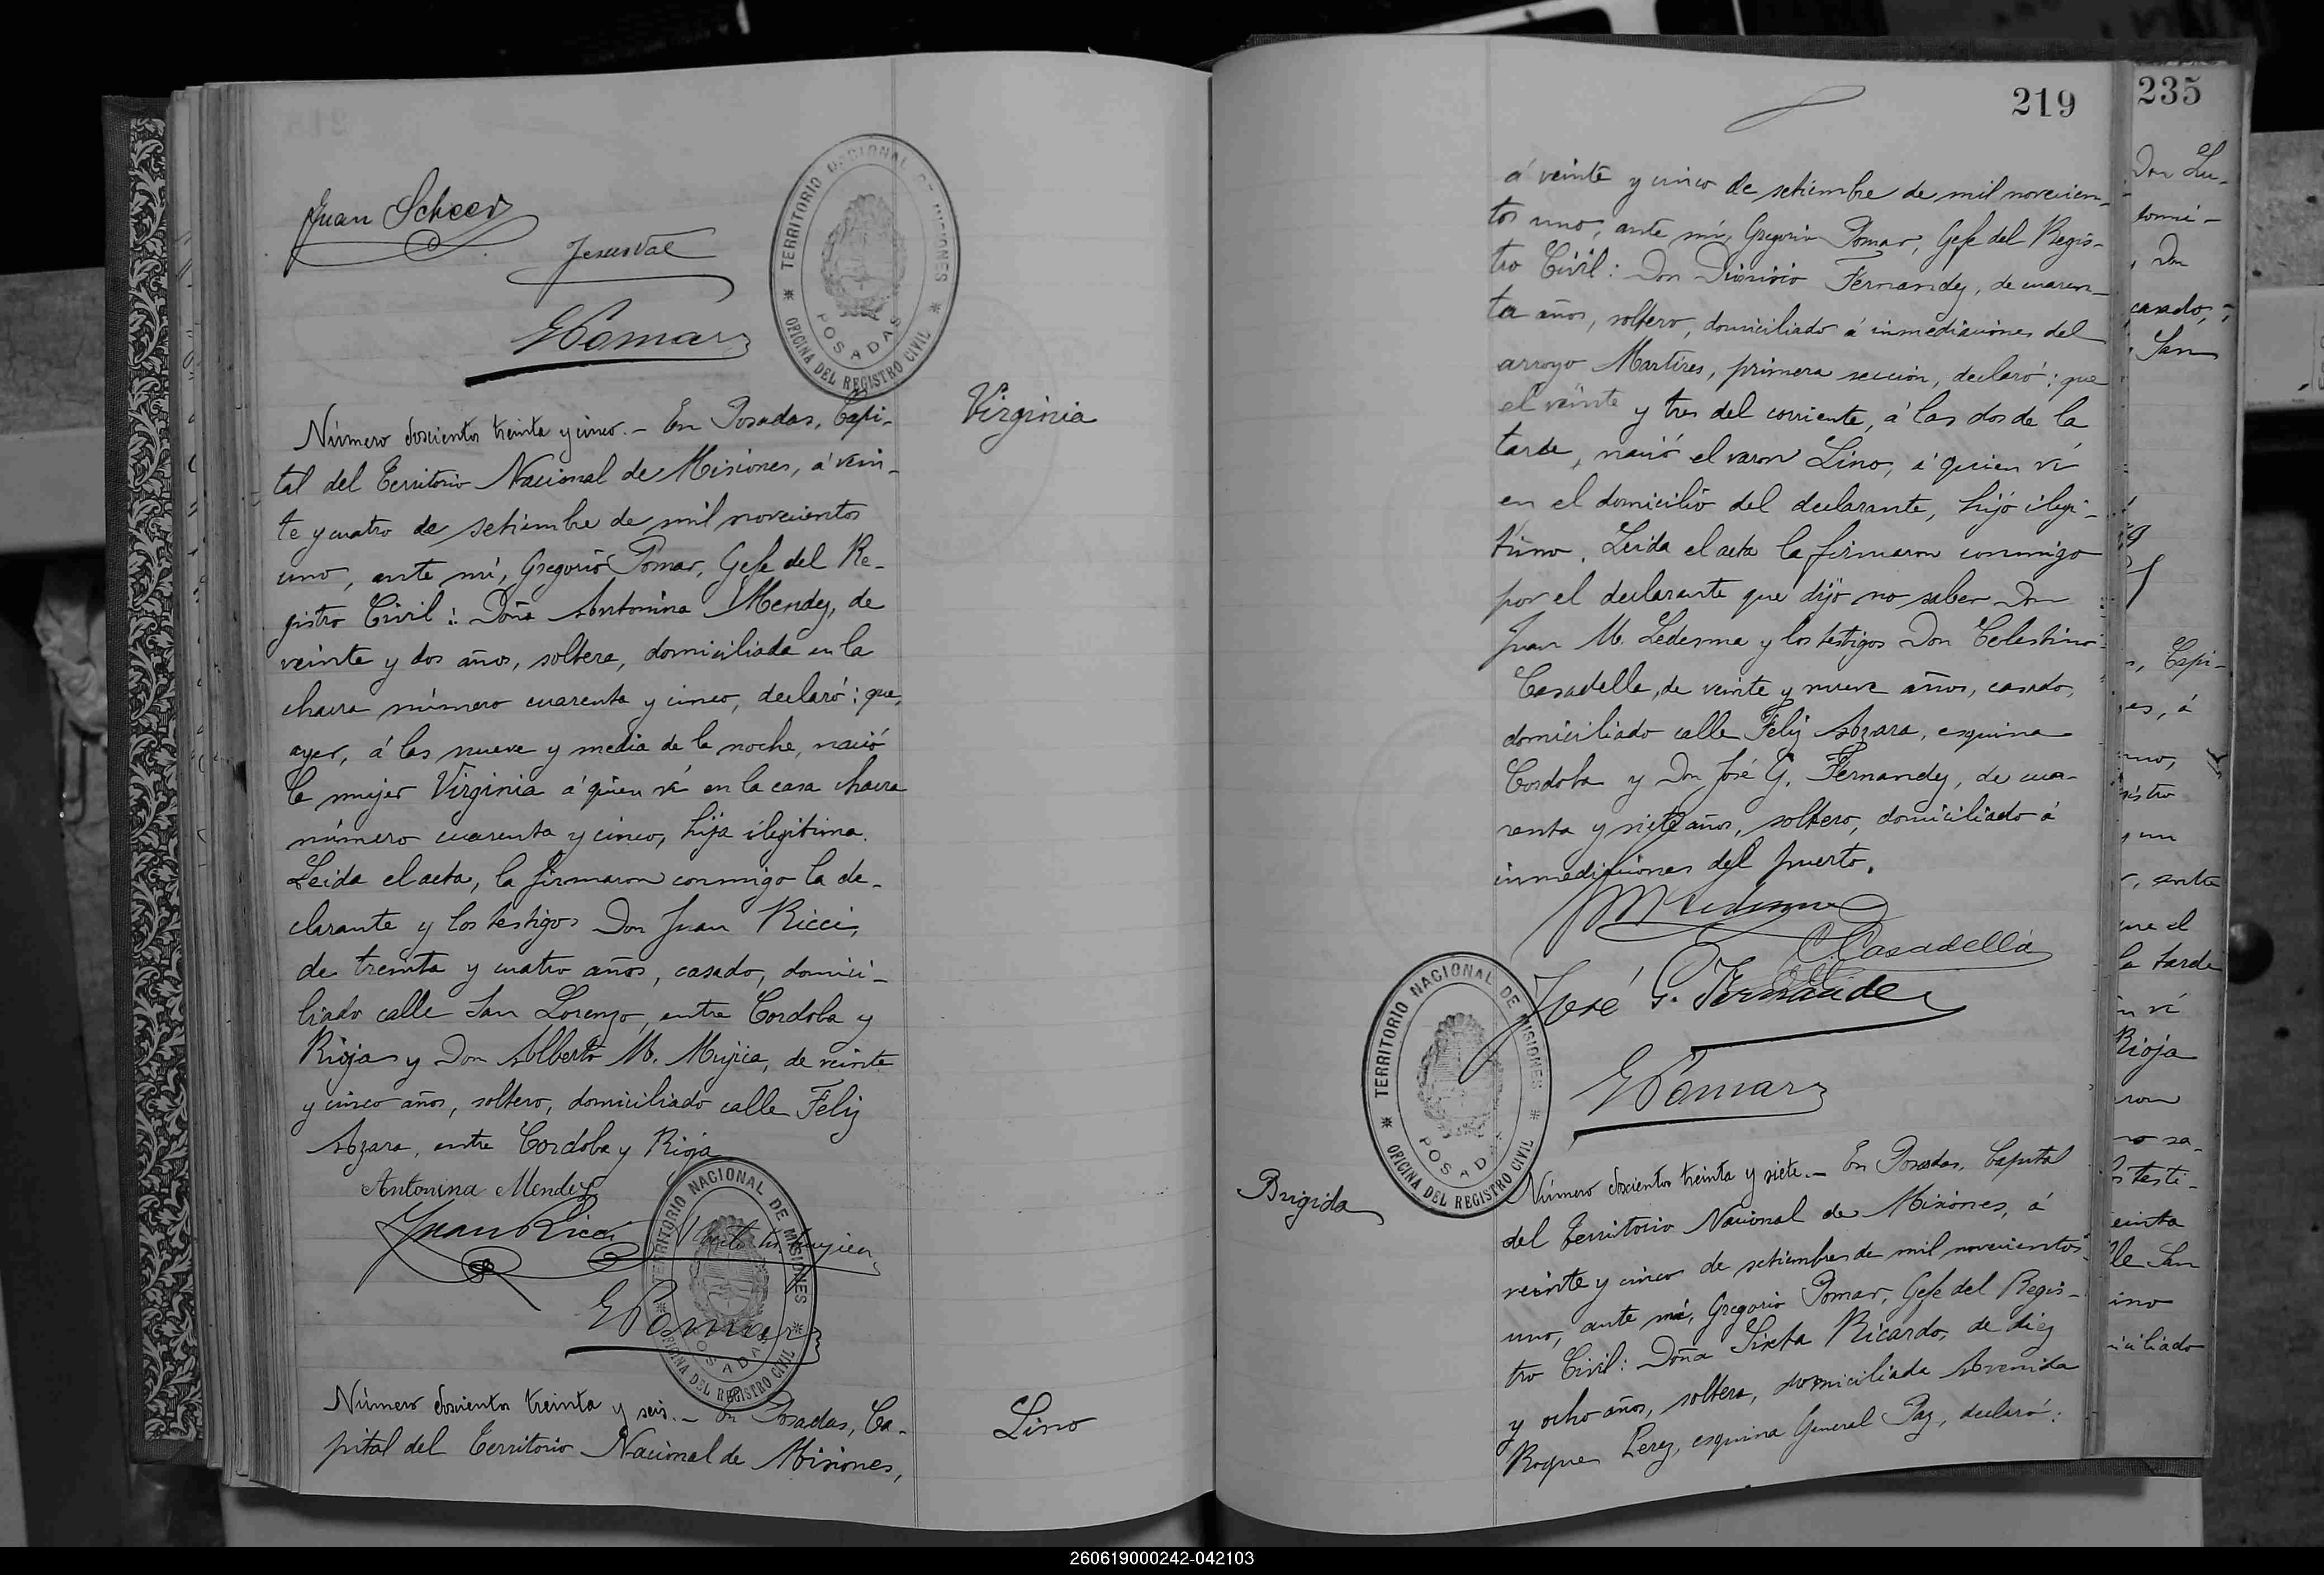 Juan Scheer
Jesus Val
GPomar
TERRITORIO NACIONAL DE MISIONES
POSADAS
OFICINA DEL REGISTRO CIVIL
Virginia
Número doscientos treinta y cinco.- En Posadas, Capi-
tal del Territorio Nacional de Misiones, á vein-
te y cuatro de setiembre de mil novecientos
uno, ante mí, Gregorio Pomar, Gefe del Re-
gistro Civil: Doña Antonina Mendez, de
veinte y dos años, soltera, domiciliada en la
chacra número cuarenta y cinco, declaró: que,
ayer, á las nueve y media de la noche, nació
la mujer Virginia á quien ví en la casa chacra
número cuarenta y cinco, hija ilegitima.
Leida el acta, la firmaron conmigo la de-
clarante y los testigos Don Juan Ricci,
de treinta y cuatro años, casado, domici-
liado calle San Lorenzo, entre Cordoba y
Rioja y Don Alberto M. Mujica, de veinte
y cinco años, soltero, domiciliado calle Feliz
Azara, entre Cordoba y Rioja
Antonina Mendez
Juan Ricci
GPomar
TERRITORIO NACIONAL DE MISIONES
POSADAS
OFICINA DEL REGISTRO CIVIL
Lino
Número doscientos treinta y seis.- En Posadas, Ca-
pital del Territorio Nacional de Misiones,
219
á veinte y cinco de setiembre de mil novecien-
tos uno, ante mí, Gregorio Pomar, Gefe del Regis-
tro Civil: Don Dionisio Fernandez, de cuaren-
ta años, soltero, domiciliado á inmediaciones del
arroyo Martires, primera seccion, declaró: que
el veinte y tres del corriente, á las dos de la
tarde, nació el varon Lino, á quien ví
en el domicilio del declarante, hijo ilegi-
timo. Leida el acta la firmaron conmigo
por el declarante que dijo no saber Don
Juan M. Ledesma y los testigos Don Celestino
Casadella, de veinte y nueve años, casado,
domiciliado calle Feliz Azara, esquina
Cordoba y Don José G. Fernandez, de cua-
renta y siete años, soltero, domiciliado á
inmediaciones del puerto.
JMLedesma
C. Casadella
José G. Fernandez
GPomar
TERRITORIO NACIONAL DE MISIONES
POSADAS
OFICINA DEL REGISTRO CIVIL
Brigida
Número doscientos treinta y siete.- En Posadas, Capital
del Territorio Nacional de Misiones, á
veinte y cinco de setiembre de mil novecientos
uno, ante mí, Gregorio Pomar, Gefe del Regis-
tro Civil: Doña Sixta Ricardo, de diez
y ocho años, soltera, domiciliada Avenida
Roque Perez, esquina General Paz, declaró:
235
Don Lu-
domi-
, Don
casado,
San
, Capi-
es, á
uno,
istro
y un
, entre
que el
la tarde
n ví
Rioja
ron
no sa-
s testi-
einta
lle San
ino
iciliado
260619000242-042103